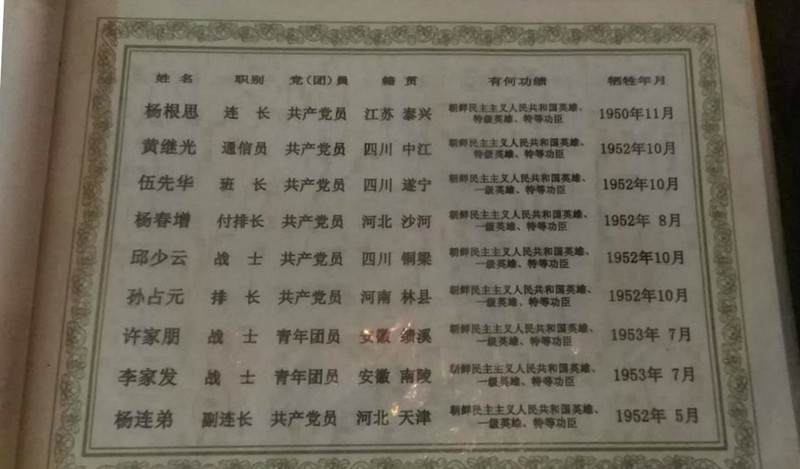 姓 名 职别 党(团)员 籍 贯 有何功绩 牺牲年月
杨根思 连 长 共产党员 江苏 泰兴 朝鲜民主主义人民共和国英雄、 1950年11月
特级英雄、特等功臣
黄继光 通信员 共产党员 四川 中江 朝鲜民主主义人民共和国英雄、 1952年10月
特级英雄、特等功臣
伍先华 班 长 共产党员 四川 遂宁 朝鲜民主主义人民共和国英雄、 1952年10月
一级英雄、特等功臣
杨春增 付排长 共产党员 河北 沙河 朝鲜民主主义人民共和国英雄、 1952年 8月
一级英雄、特等功臣
邱少云 战 士 共产党员 四川 铜梁 朝鲜民主主义人民共和国英雄、 1952年10月
一级英雄、特等功臣
孙占元 排 长 共产党员 河南 林县 朝鲜民主主义人民共和国英雄、 1952年10月
一级英雄、特等功臣
许家朋 战 士 青年团员 安徽 绩溪 朝鲜民主主义人民共和国英雄、 1953年 7月
一级英雄、特等功臣
李家发 战 士 青年团员 安徽 南陵 朝鲜民主主义人民共和国英雄、 1953年 7月
一级英雄、特等功臣
杨连弟 副连长 共产党员 河北 天津 朝鲜民主主义人民共和国英雄、 1952年 5月
一级英雄、特等功臣